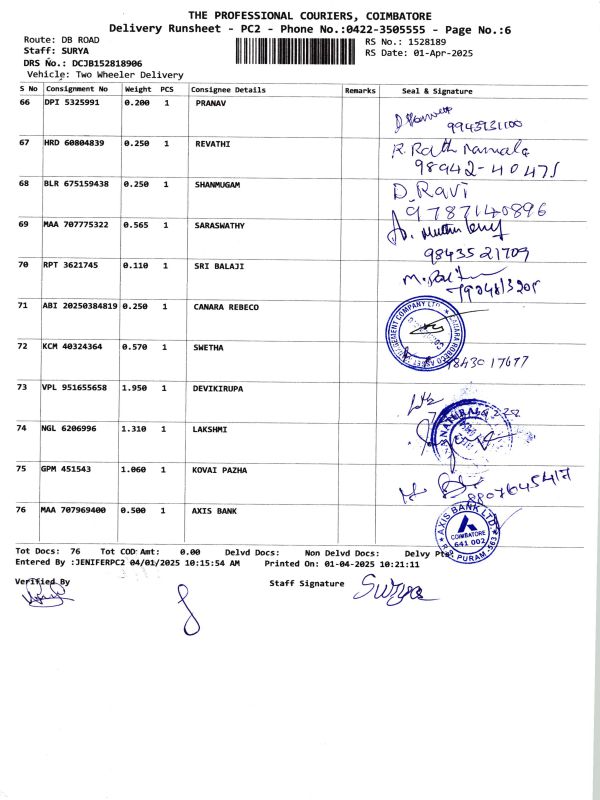 THE PROFESSIONAL COURIERS, COIMBATORE
Delivery Runsheet - PC2 - Phone No.:0422-3505555 - Page No.:6
Route: DB ROAD RS No.: 1528189
Staff: SURYA RS Date: 01-Apr-2025
DRS No.: DCJB152818906
Vehicle: Two Wheeler Delivery
S No Consignment No Weight PCS Consignee Details Remarks Seal & Signature
66 DPI 5325991 0.200 1 PRANAV
67 HRD 60804839 0.250 1 REVATHI R.
98942-40475
68 BLR 675159438 0.250 1 SHANMUGAM D. Ravi
9787140896
69 MAA 707775322 0.565 1 SARASWATHY
9843521709
70 RPT 3621745 0.110 1 SRI BALAJI
71 ABI 20250384819 0.250 1 CANARA REBECO
72 KCM 40324364 0.570 1 SWETHA 9843017677
73 VPL 951655658 1.950 1 DEVIKIRUPA
74 NGL 6206996 1.310 1 LAKSHMI
75 GPM 451543 1.060 1 KOVAI PAZHA 8807645417
76 MAA 707969400 0.500 1 AXIS BANK
AXIS BANK LTD.
COIMBATORE
641 002
R.S. PURAM-563
Tot Docs: 76 Tot COD Amt: 0.00 Delvd Docs: Non Delvd Docs: Delvy Pt
Entered By :JENIFERPC2 04/01/2025 10:15:54 AM Printed On: 01-04-2025 10:21:11
Verified By Staff Signature Surya